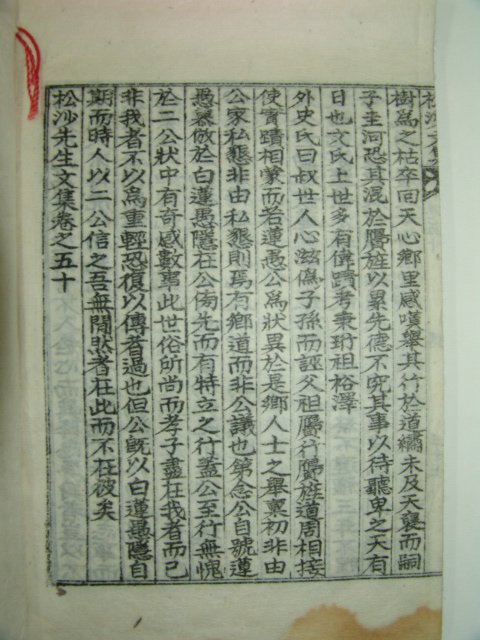 樹爲之枯卒回天心鄕里感嘆擧其行於道繡未及天襃而嗣
子圭河恐其混於贋旌以累先德不究其事以待聽卑之天有
日也文氏上世多有偉蹟考秉珩祖裕澤
外史氏曰叔世人心滋僞子孫而誣父祖贋行贋旌道周相接
使實蹟相蒙而若蓮愚公爲狀異於是鄕人士之擧稟初非由
公家私懇非由私懇則焉有鄕道而非公議也第念公自號蓮
愚慕倣於白蓮愚隱在公傍先而有特立之行蓋公至行無愧
於二公狀中有奇感數事此世俗所尙而孝子盡在我者而已
非我者不以爲重輕恐復以傳者過也但公旣以白蓮愚隱自
期而時人以二公信之吾無間然者在此而不在彼矣
松沙先生文集卷之五十